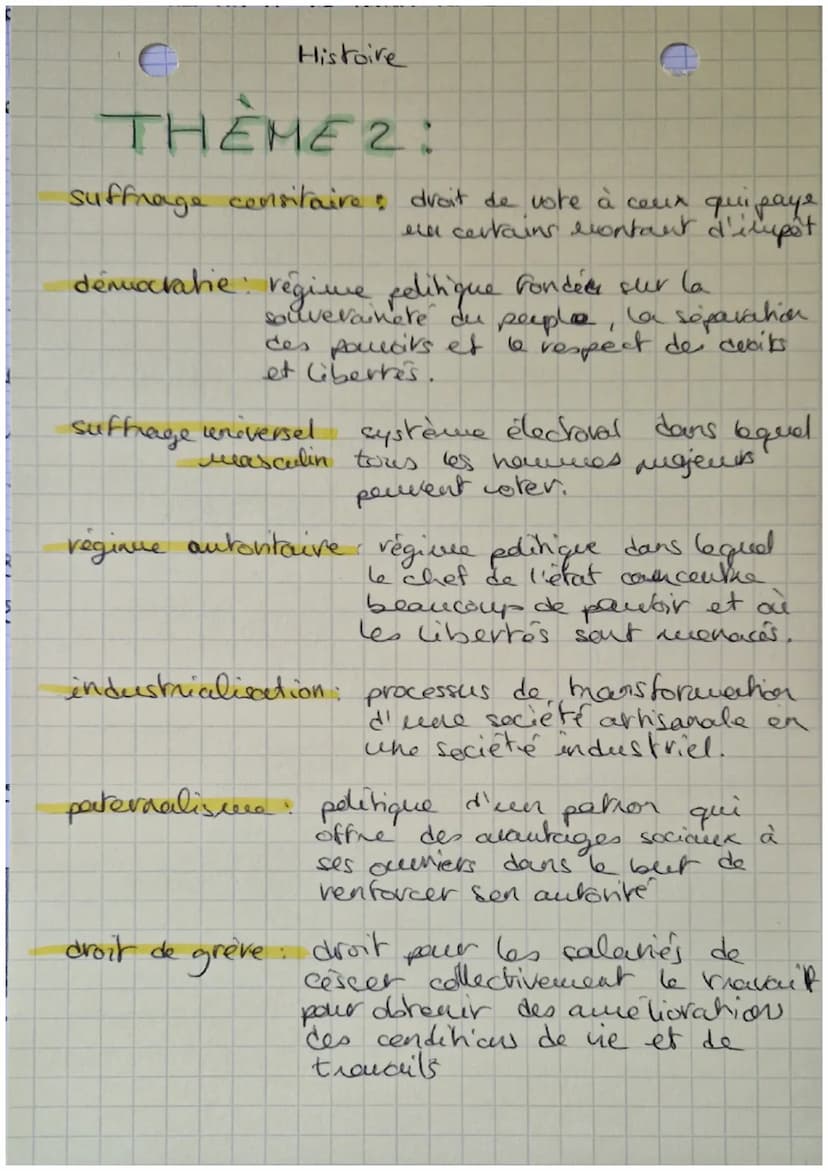 Histoire
THÈME 2 :
suffrage censitaire : droit de vote à ceux qui paye
un certains montant d'impôt
démocratie : régime politique fondée sur la
souveraineté du peuple, la séparation
des pouvoirs et le respect des droits
et libertés.
suffrage universel système électoral dans lequel
masculin tous les hommes majeurs
peuvent voter.
régime autoritaire : régime politique dans lequel
le chef de l'état concentre
beaucoup de pouvoir et où
les libertés sont menacés.
industrialisation : processus de transformation
d'une société artisanale en
une société industriel.
paternalisme : politique d'un patron qui
offre des avantages sociaux à
ses ouvriers dans le but de
renforcer son autorité
droit de grève : droit pour les salariés de
cèscer collectivement le travail
pour obtenir des amélioration
des conditions de vie et de
travails